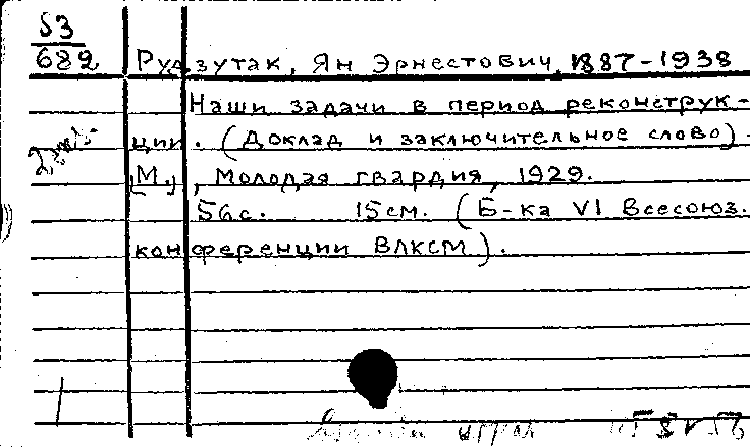 53
682
Рудзутак, Ян Эрнестович, 1887-1938
Наши задачи в период реконструк-
ции. (Доклад и заключительное слово).
[М.], Молодая гвардия, 1929.
56с. 15см. (Б-ка VI Всесоюз.
конференции ВЛКСМ).